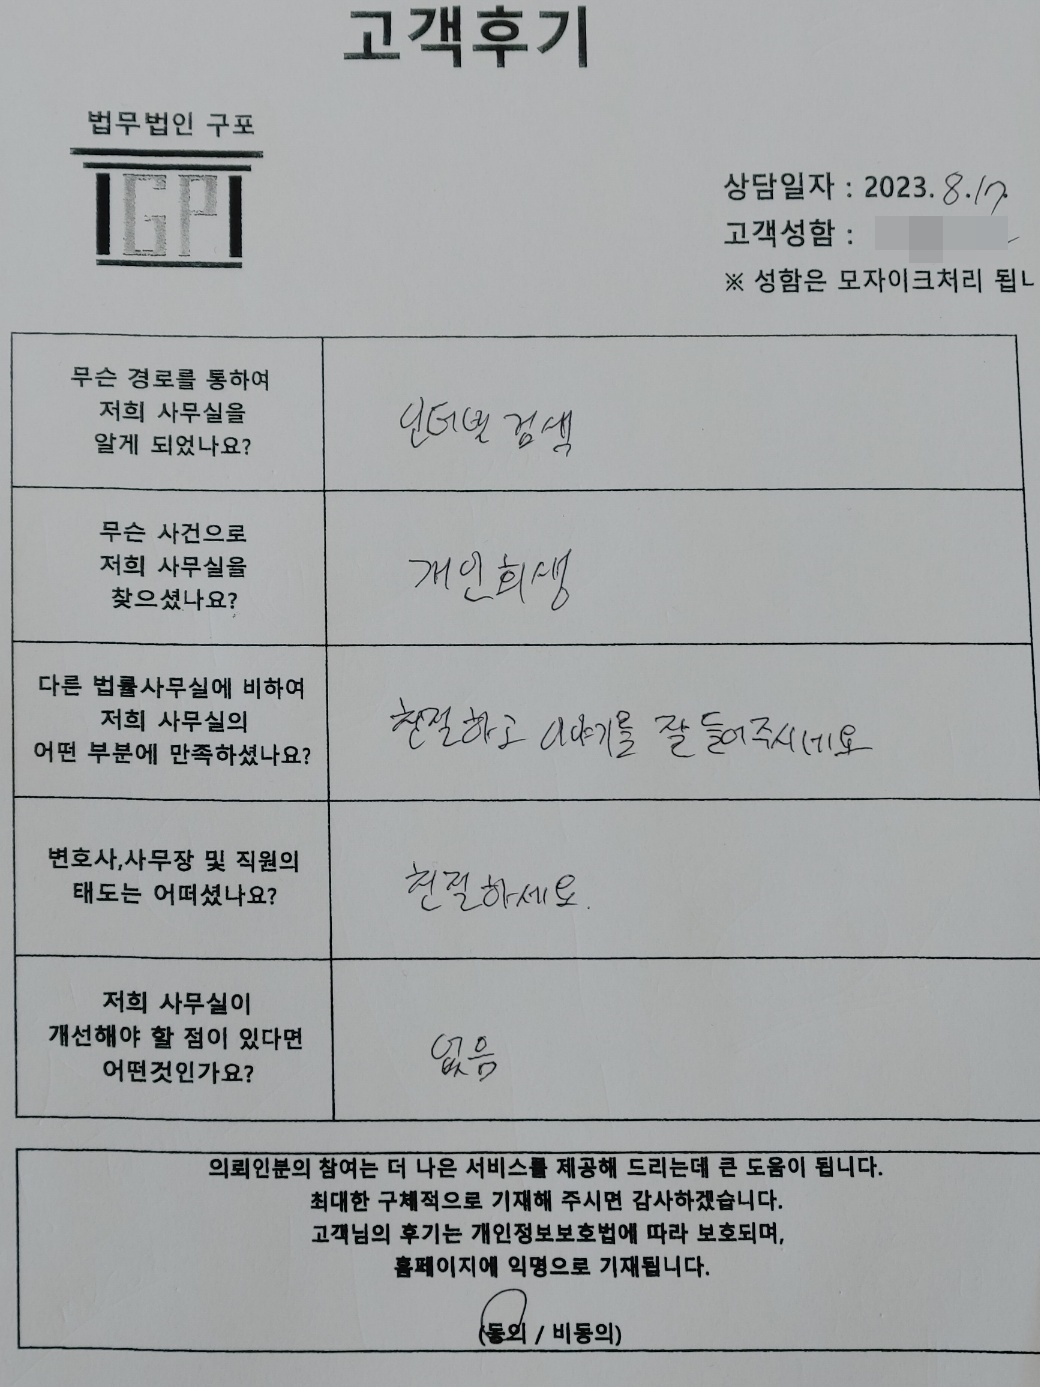 고객후기
법무법인 구포
GP
상담일자 : 2023. 8.17.
고객성함 :
※ 성함은 모자이크처리 됩
무슨 경로를 통하여
저희 사무실을
알게 되었나요?
인터넷 검색
무슨 사건으로
저희 사무실을
찾으셨나요?
개인회생
다른 법률사무실에 비하여
저희 사무실의
어떤 부분에 만족하셨나요?
친절하고 이야기를 잘 들어주시네요
변호사,사무장 및 직원의
태도는 어떠셨나요?
친절하세요.
저희 사무실이
개선해야 할 점이 있다면
어떤것인가요?
없음
의뢰인분의 참여는 더 나은 서비스를 제공해 드리는데 큰 도움이 됩니다.
최대한 구체적으로 기재해 주시면 감사하겠습니다.
고객님의 후기는 개인정보보호법에 따라 보호되며,
홈페이지에 익명으로 기재됩니다.
(동의 / 비동의)